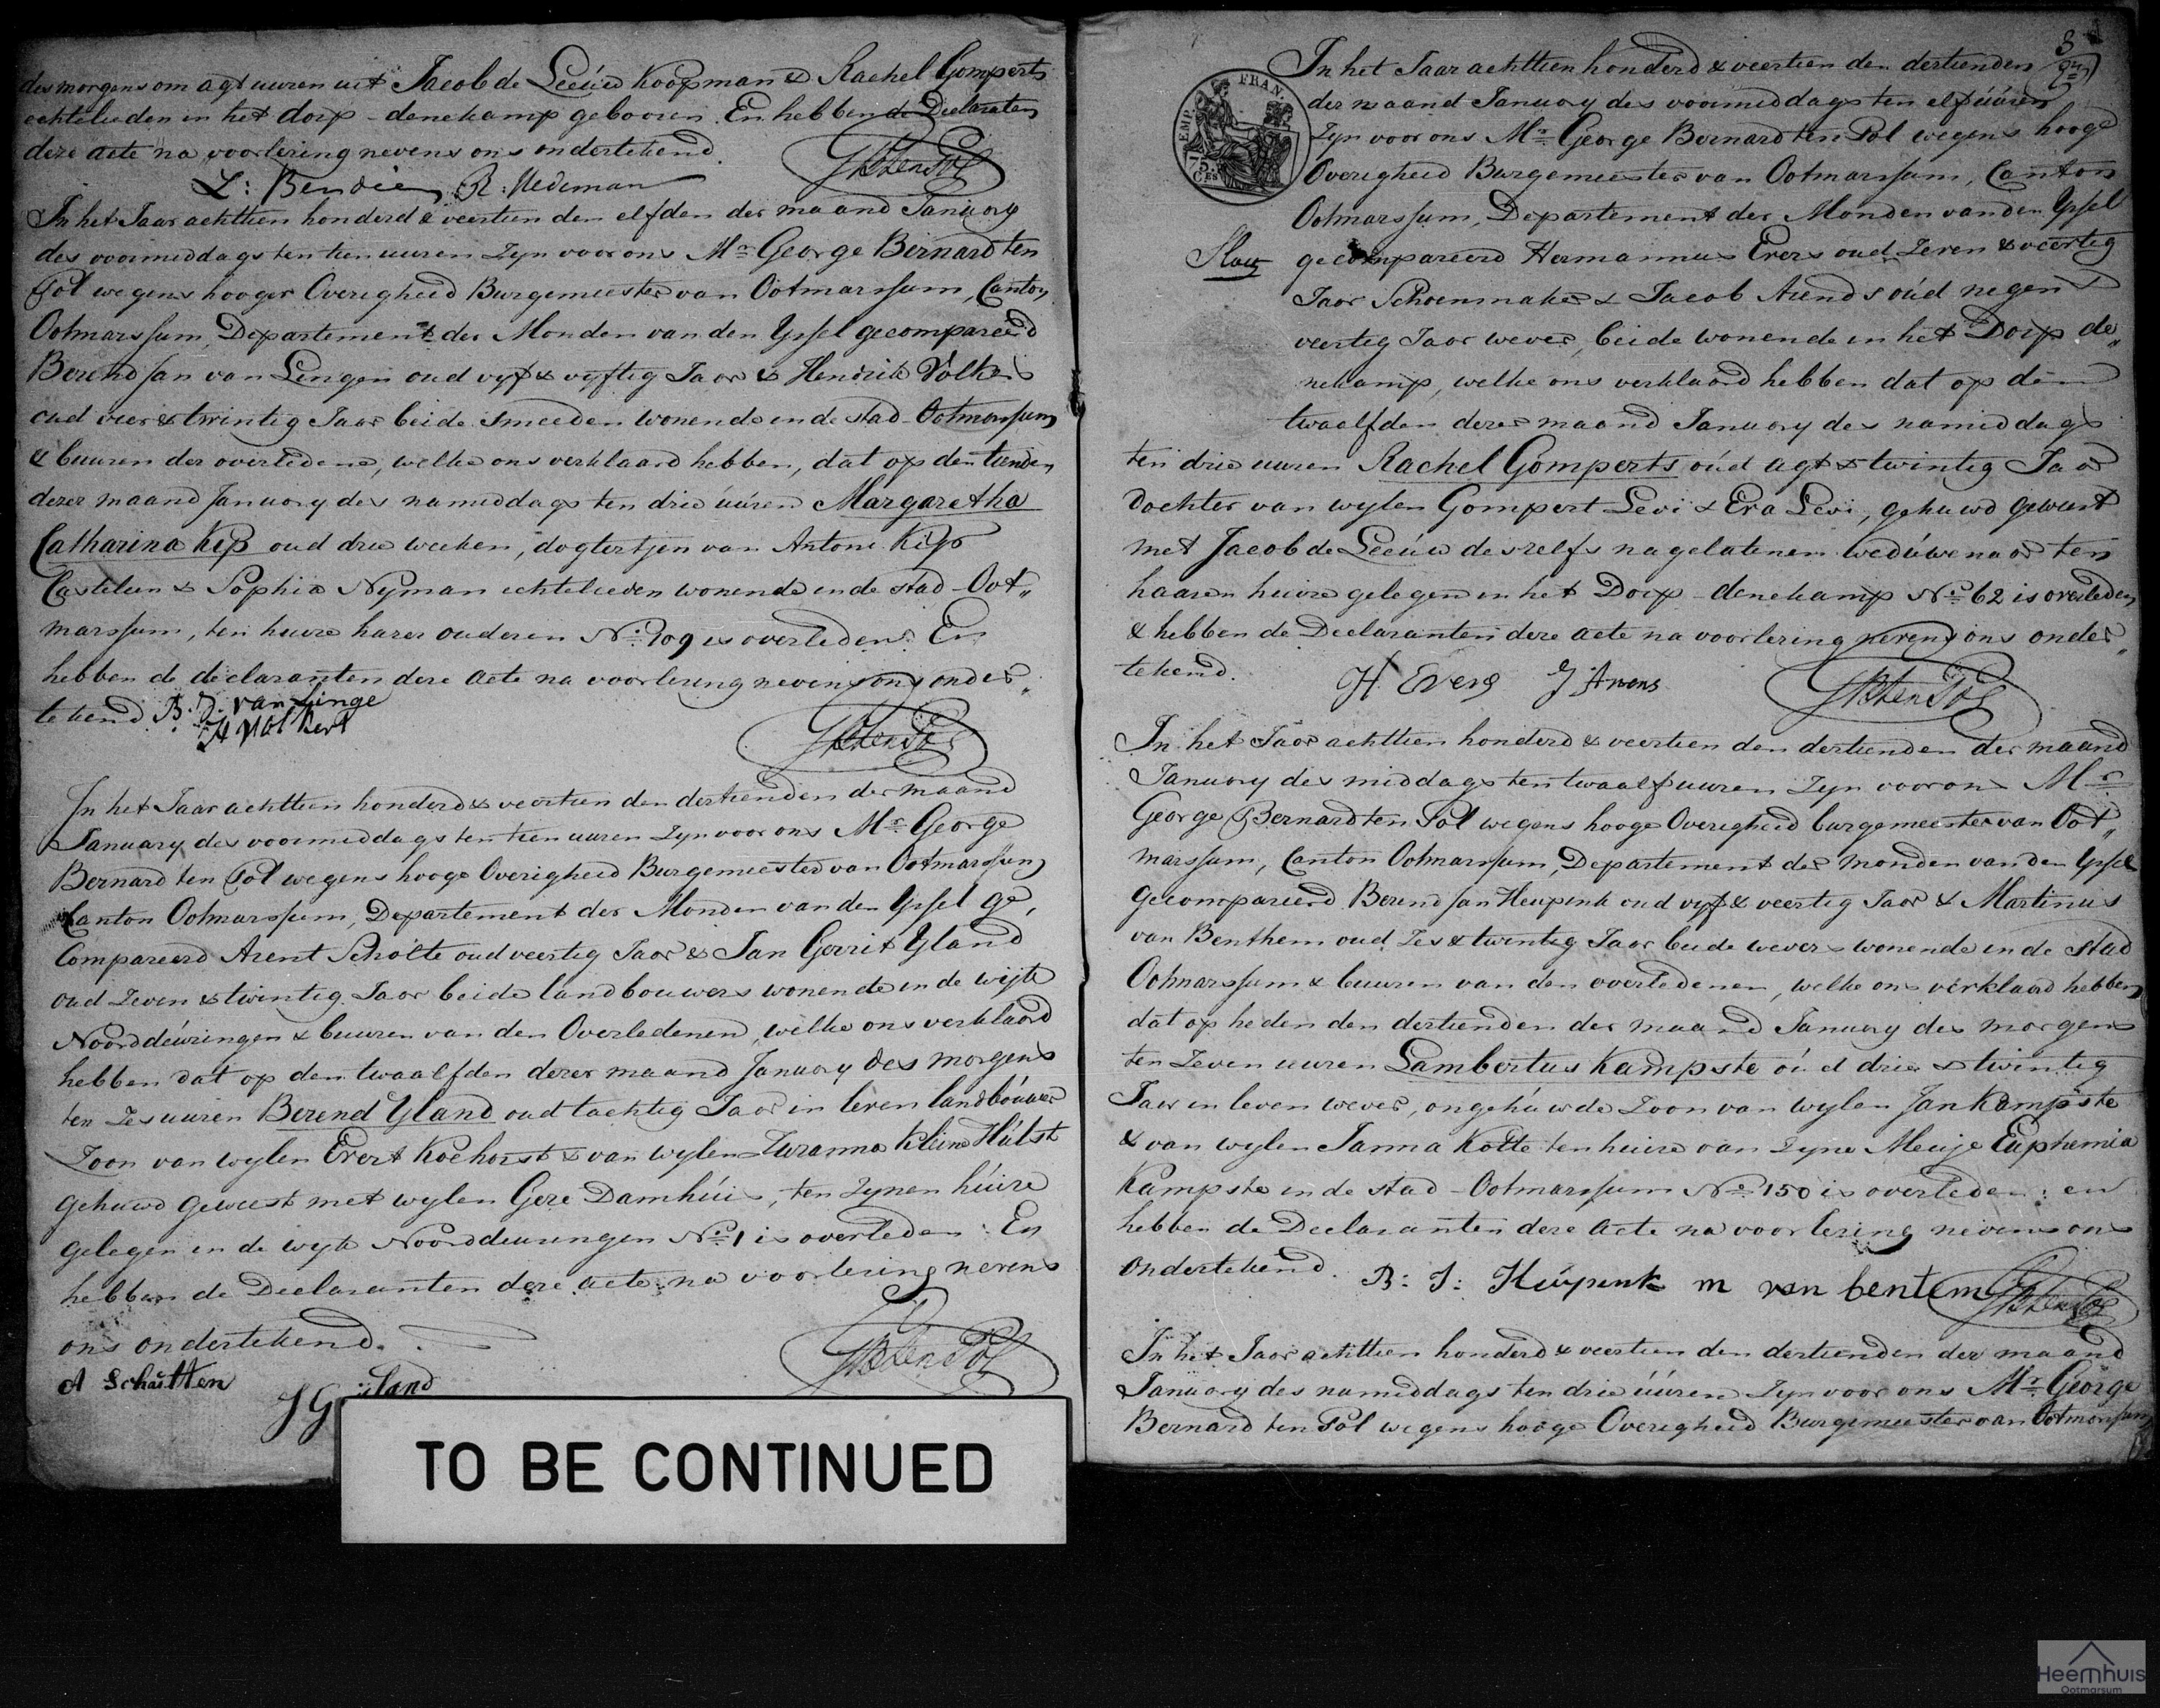 des morgens om agt uuren uit Jacob de Leeúw Koopman & Rachel Gomperts
echtelieden in het dorp denekamp gebooren. En hebben de Declaraten
deze acte na voorlezing nevens ons ondertekend.
GB ten Pol
In het Jaar achttien honderd & veertien den elfden der maand January
des voormiddags ten tien uuren zyn voor ons Mr. George Bernard ten
Pol wegens hooger Overigheid Burgemeester van Ootmarssum, Canton
Ootmarssum, Departement der Monden van den Yssel gecompareerd
Berend Jan van Lingen oud vyf & vyftig Jaar & Hendrik Volkers
oud vier & twintig Jaar beide Smeeden wonende in de stad Ootmarssum
& buuren der overledene, welke ons verklaard hebben, dat op den tienden
dezer maand January des namiddags ten drie úúren Margaretha
Catharina Kip oud drie weeken, dogtertjen van Antoni Kip
Castelein & Sophia Nyman echtelieden wonende in de stad Oot„
marssum, ten huize harer ouderen No. 109 is overleden: En
hebben de declaranten deze acte na voorlezing nevens ons onder„
tekend B. J. van Linge
H Volkert
GB ten Pol
In het Jaar achttien honderd & veertien den dertienden der maand
January des voormiddags ten tien uuren zyn voor ons Mr. George
Bernard ten Pol wegens hooge Overigheid Burgemeester van Ootmarssum
Canton Ootmarssum, Departement der Monden van den Yssel ge„
Compareerd Arent Scholte oud veertig Jaar & Jan Gerrit Yland
oud zeven & twintig Jaar beide landbouwers wonende in de wijk
Noorddeúringen & buuren van den Overledenen, welke ons verklaard
hebben dat op den twaalfden dezer maand January des morgens
ten zes uuren Berend Yland oud tachtig Jaar in leven landbóuwer
Zoon van wylen Evert Koehorst & van wylen Zuzanna Kleine Húlst
gehuwd geweest met wylen Geze Damhúis, ten zynen húize
gelegen in de wyk Noorddeuringen No. 1 is overleden: En
hebben de Declaranten deze acte na voorlezing nevens
ons ondertekend.
A Schåtten
GB ten Pol
J G ÿland
TO BE CONTINUED
3
EMP. FRAN.
75 Ces
In het Jaar achttien honderd & veertien den dertienden
der maand January des voormiddags ten elf úúren
Zyn voor ons Mr. George Bernard ten Pol wegens hooge
Overigheid Burgemeester van Ootmarssum, Canton
Ootmarssum, Departement der Monden van den Yssel
gecompareerd Hermannus Evers oud zeven & veertig
Jaar Schoenmaker & Jacob Arends oúd negen &
veertig Jaar wever, beide wonende in het Dorp de„
nekamp, welke ons verklaard hebben dat op den
twaalfden dezer maand January des namiddags
ten drie uuren Rachel Gomperts oúd agt & twintig Jaar
dochter van wylen Gompert Levi & Eva Levi, gehuwd geweest
met Jacob de Leeúw deszelfs nagelatenen wedúwenaar ten
haaren huize gelegen in het Dorp denekamp No. 62 is overleden
& hebben de Declaranten deze acte na voorlezing nevens ons onder„
tekend. H Evers J Arens GB ten Pol
In het Jaar achttien honderd & veertien den dertienden der maand
January des middags ten twaalf uuren zyn voor ons Mr.
George Bernard ten Pol wegens hooge Overigheid burgemeester van Oot„
marssum, Canton Ootmarssum, Departement der monden van den Yssel
gecompareerd Berend Jan Heupink oud vyf & veertig Jaar & Martinus
van Benthem oud zes & twintig Jaar beide wevers wonende in de stad
Ootmarssum & buuren van den overledenen, welke ons verklaard hebben
dat op heden den dertienden der maand January des morgens
ten zeven uuren Lambertus Kampste oúd drie & twintig
Jaar in leven wever, ongehúwde Zoon van wylen Jan Kampste
& van wylen Janna Kotte ten huize van zyne Meuje Euphemia
Kampste in de stad Ootmarssum No. 150 is overleden: en
hebben de Declaranten deze acte na voorlezing nevens ons
ondertekend. B: J: Húÿpenk m van bentem GB ten Pol
In het Jaar achttien honderd & veertien den dertienden der maand
January des namiddags ten drie úúren zyn voor ons Mr. George
Bernard ten Pol wegens hooge Overigheid Burgemeester van Ootmarssum
Heemhuis
Ootmarsum